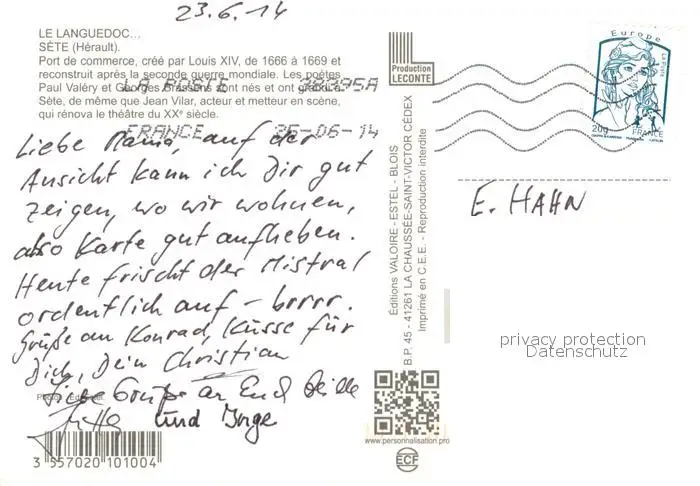 23.6.14
LE LANGUEDOC...
SÈTE (Hérault).
Port de commerce, créé par Louis XIV, de 1666 à 1669 et
reconstruit après la seconde guerre mondiale. Les poètes
Paul Valéry et Georges Brassens sont nés et ont grandi à
Sète, de même que Jean Vilar, acteur et metteur en scène,
qui rénova le théâtre du XXe siècle.
LA POSTE 38395A
FRANCE 25-06-14
Liebe Mama, auf der
Ansicht kann ich Dir gut
zeigen, wo wir wohnen,
also Karte gut aufheben.
Heute frischt der Mistral
ordentlich auf - brrrr.
Grüße an Konrad, Küsse für
Dich, Dein Christian
Liebe Grüße an Euch Beide
und Inge
3 557020 101004
Production
LECONTE
Éditions VALOIRE - ESTEL - BLOIS
B.P. 45 - 41261 LA CHAUSSÉE-SAINT-VICTOR CÉDEX
Imprimé en C.E.E. - Reproduction interdite
www.personnalisation.pro
ECF
Europe
La Poste
20g
FRANCE
E. HAHN
privacy protection
Datenschutz